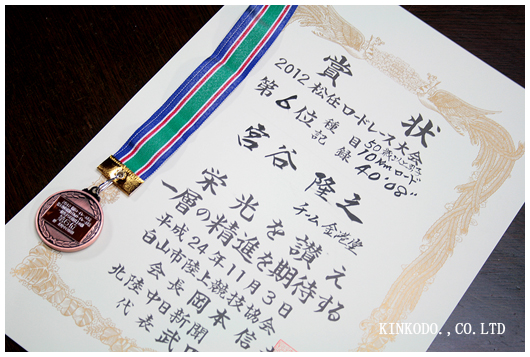 賞状
2012松任ロードレース大会
第6位
種目
50歳
10kmロード
記録 40'08"
宮谷 隆之
チーム金港堂
栄光を讃え
一層の精進を期待する
平成24年11月3日
白山市陸上競技協会
会長 岡本信
北陸中日新聞
代表 武田
KINKODO.,CO.LTD